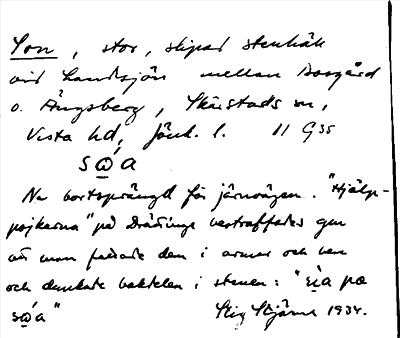 Son, stor, slipad stenhäll
vid Landsjön mellan Boagård
o. Ängsberg, Skärstads sn,
Vista hd, Jönk. l. 11 G35
sώa
Nu bortsprängd för järnvägen. "Hjälp-
pojkarna" på Drättinge bestraffades gm
att man fattade den i armar och ben
och dunkade baktelen i stenen: "sla på
sώa" Stig Stjärna 1934.